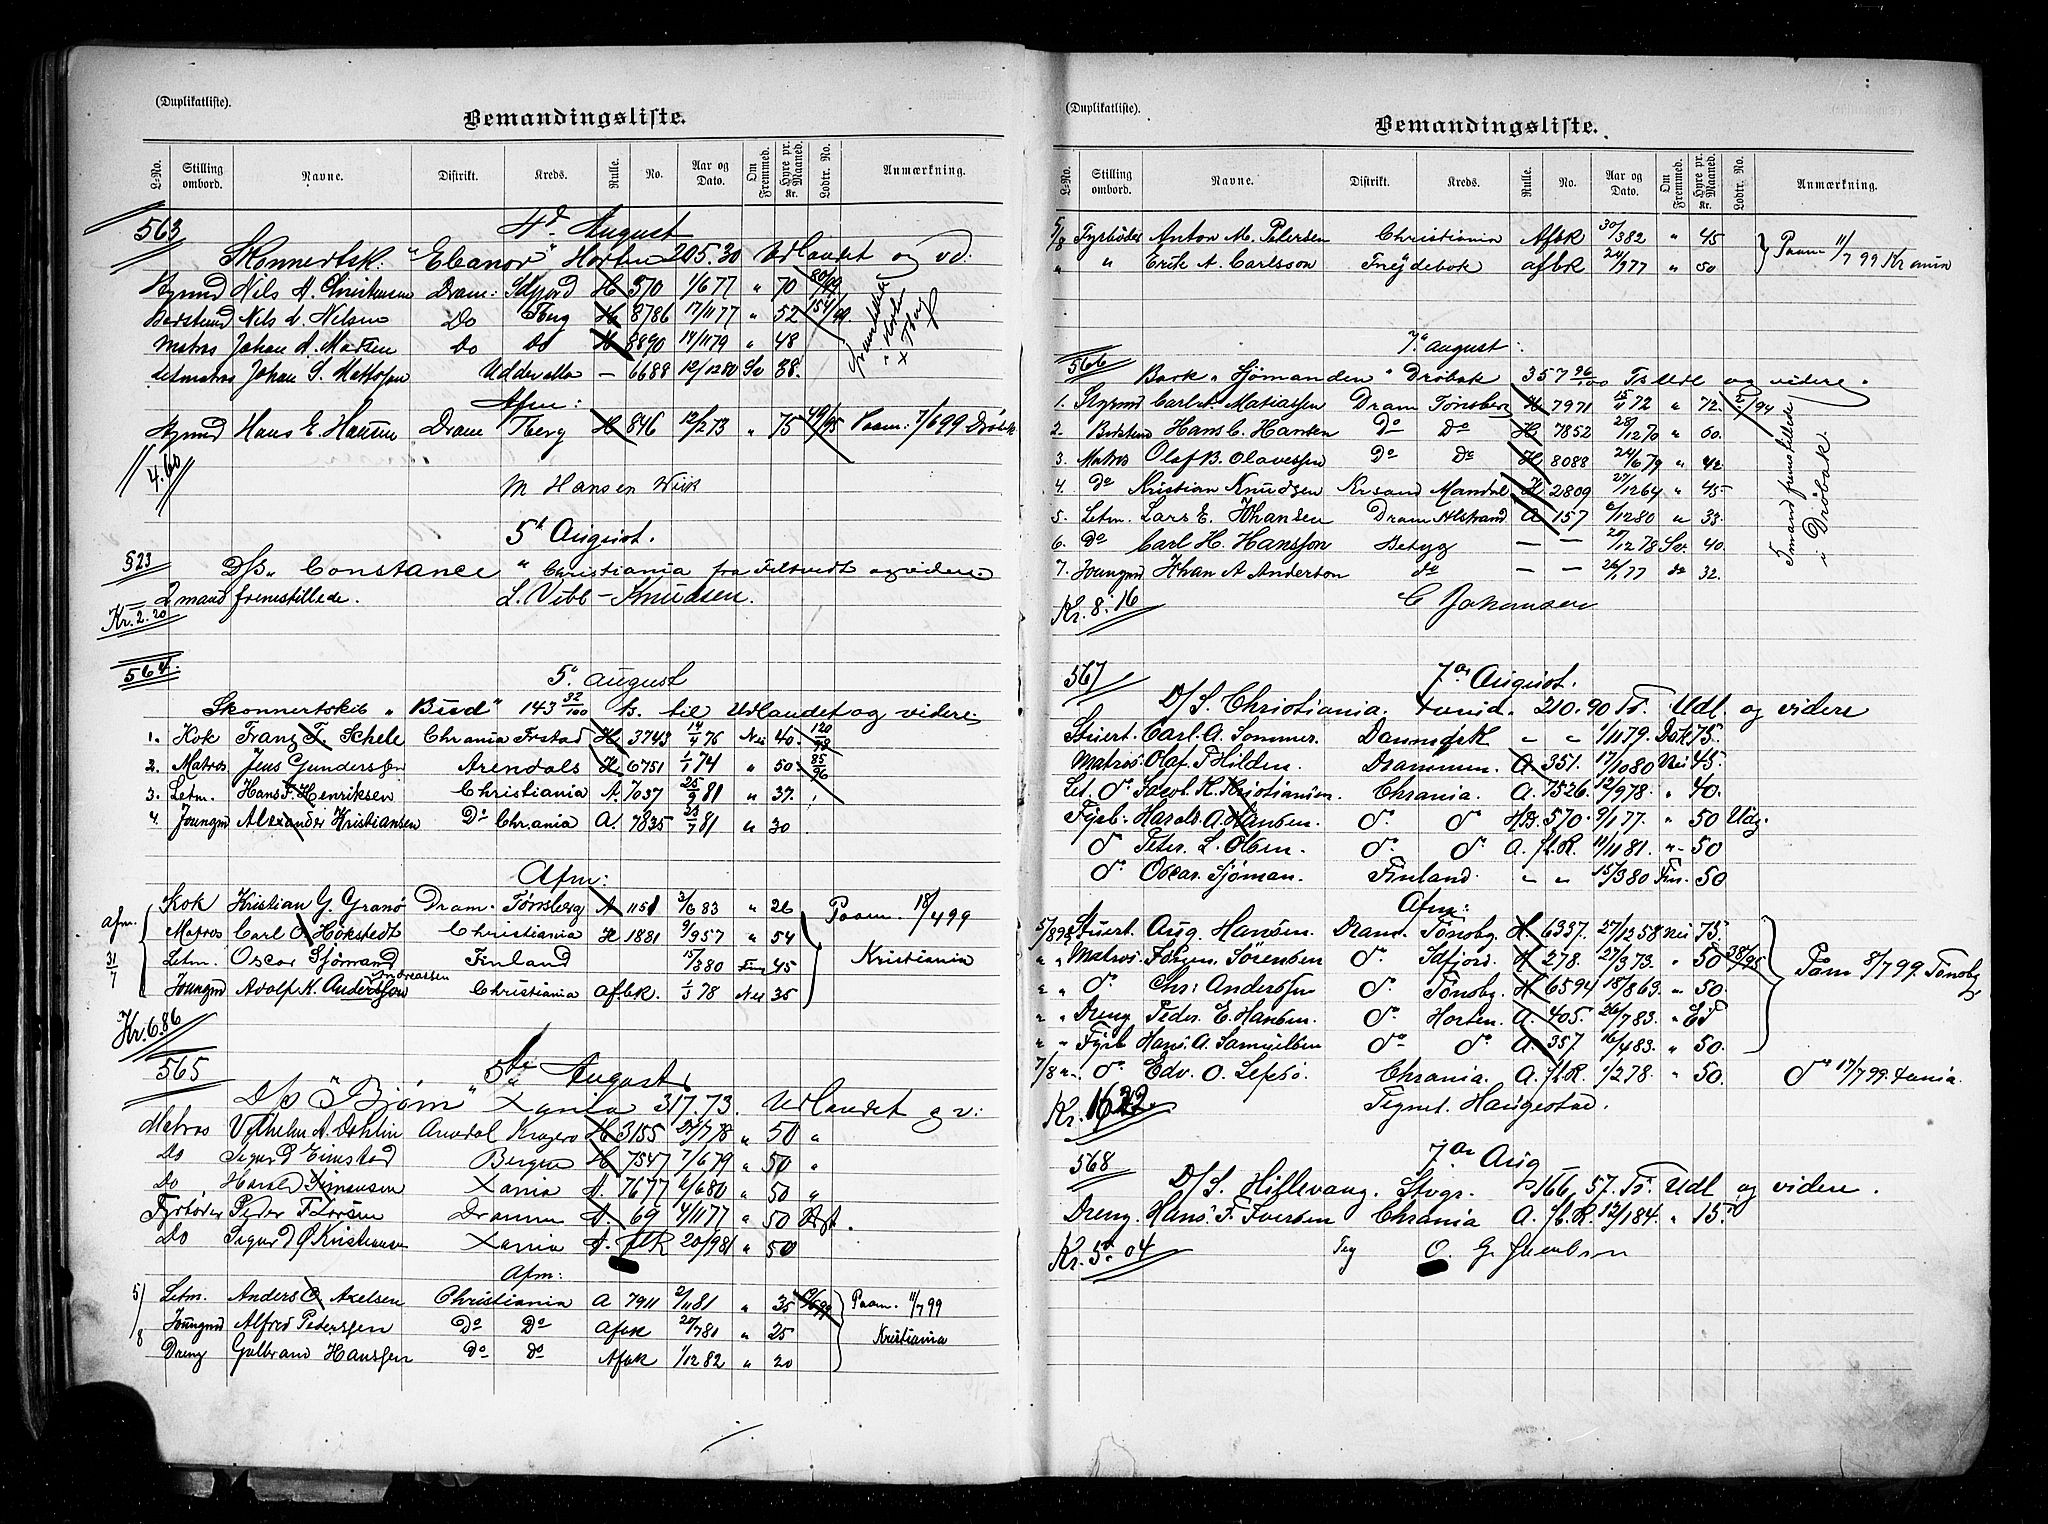 (Duplikatliste).
Bemandingsliste.
L-No. Stilling ombord. Navne. Distrikt. Kreds. Rulle. No. Aar og Dato. Om Fremmed. Hyre pr. Maaned. Kr. Lodtr. No. Anmærkning.
563 4d August
Skonnertsk: "Eleanor" Horten 205.30 Udlandet og vd.
Styrmd Nils A. Christensen Dram: Sdfjord H 570 1/6 77 " 70 80/99
Bødstmd Nils A. Nilsen Do Tberg H 8786 17/11 77 " 52 154/99
Matros Johan A. Madsen Do Do H 8890 14/11 79 " 48
Letmatros Johan S. Mattsson Uddevalla — 6688 12/12 80 Sv 38.
Afm:
Styrmd Hans E. Hansen Dram Tberg H 846 12/2 73 " 75 49/95 Paam: 7/6 99 Drøbak
4.60
M Hansen Wiik
5t August.
§23 D/S. Constance " Christiania fra Filtvedt og videre
2 mand fremstillede. L. Vibe-Knudsen.
Kr. 2.20
564. 5. August
Skonnertskib " Bud" 143 32/100 ts. til Udlandet og videre
1. Kok Franz F. Schele Chrania Frstad H. 3743 14/4 76 Nei 40. 120/98
2. Matros Jens Gundersen Arendals H 6751 1/1 74 " 50. 85/96
3. Letm. Hans F. Henriksen Christiania A. 7037 25/9 81 " 37.
4. Joungmd Alexander Kristiansen Do Chrania A. 7835 23/7 81 " 30
Afm:
Kok Kristian G. Granø Dram. Tønsberg A 1151 3/6 83 " 26 Paam. 18/4 99
afm. 31/7 Matros Carl O. Høkstedt Christiania H 1881 9/9 57 " 54
Letm. Oscar Sjömand Finland 15/3 80 Fin 45 Kristiania
Joungmd Adolf K. Anderssen Andreassen Christiania afbk. 1/3 78 Nei 35
Kr. 6.86
565 5te August
D/S "Bjørn" Xania 317.73. Udlandet og v:
Matros Vilhelm A. Dahlin Arendal Kragerø H 3155 24/7 78 " 50 "
Do Sigurd Eimstad Bergen H 7547 7/6 79 " 50 "
Do Harald Simensen Xania A. 7677 6/6 80 " 50 "
Fyrbøder Peder F. Larsen Drammen A. 69 4/11 77 " 50 Udgt.
Do Sigurd Ø Kristiansen Xania A. flR 20/9 81 " 50
Afm:
5/8 Letm. Anders O. Axelsen Christiania A 7911 2/11 81 " 35 Paam. 11/7 99
Joungmd Alfred Pederssen Do Do Afbk 25/7 81 " 25 Kristiania
Dreng Gulbrand Hanssen Do Do Afbk 1/12 82 " 20
(Duplikatliste).
Bemandingsliste.
L-No. Stilling ombord. Navne. Distrikt. Kreds. Rulle. No. Aar og Dato. Om Fremmed. Hyre pr. Maaned. Kr. Lodtr. No. Anmærkning.
5/8 Fyrbøder Anton M. Petersen Christiania Afbk 30/3 82 " 45
" " Erik A. Carlsson afbk 24/9 77 " 50 Paam 11/7 99 Krania
7. august.
566 Bark " Sjømanden " Drøbak 357 96/100 Ts Udl og videre.
1. Styrmd Carl A. Matiassen Dram Tønsberg H 7971 15/11 72 " 72. 2/94
2. Bødstmd Hans C. Hansen Do Do H 7852 28/12 70 " 60.
3. Matros Olaf B. Olavessen Do Do H 8088 24/6 79 " 42
4. do Kristian Knudsen Krsand Mandal H 2809 27/12 64 " 45
5. Letm. Lars E. Johansen Dram Hlstrand A 157 6/12 80 " 33
6. do Carl H. Hansson Betyg — — 20/12 78 Sv. 40.
7. Joungmd Johan A Anderson do — — 26/1 77 do 32.
5 mand fremstillede i Drøbak.
Kr. 8.16 C Johannsen
567 7de August.
D/S. Christiania. Xania. 210.90 Ts. Udl. og videre
Stuert. Carl. A. Sommer. Danmark " " 1/11 79. Dansk 75.
Matros. Olaf. T. Hilden. Drammen. A. 351. 17/10 80 Nei 45.
Let. do Jacob. K. Kristiansen. Chrania. A. 7526. 12/9 78. " 40.
Fyrb. Harald. A. Hansen. do. do HB. 570. 9/1 77. " 50 Udg.
do Peter. L. Olsen. do. do A. fl.R. 11/11 81. " 50
do. Oscar. Sjöman. Finland. " " 15/3 80 Fin. 50
Afm:
5/8 99 Stuert. Aug. Hansen. Dram. Tønsbg. H. 6337. 27/12 58 Nei 75.
" " Matros Jørgen. Sørensen do. Sdfjord. H 278. 27/3 73. " 50 38/95 Paam 8/7 99. Tønsbg
" " do. Chr: Anderssen do. Tønsbg. H 6594 18/8 63. " 50.
" " Dreng Peder. E. Hansen. do. Horten. A. 405. 26/7 83. "
" " Fyrb Hans. A. Samuelsen do do. A. 357 16/4 83. " 50.
7/8 " do. Edv. O. Lepsø. Chrania. A. fl.R. 1/2 78. " 50. do 17/7 99. Xania.
Kr. 16.22. Tegnet. Haugestad.
568 7de Aug
D/S. Hillevaag. Stvgr. 166,57. Ts. Udl og videre.
Dreng. Hans. F. Iversen Chrania A. fl.R. 12/1 84. " 15.
Kr. 5.04 Teg O. G. Jacobsen